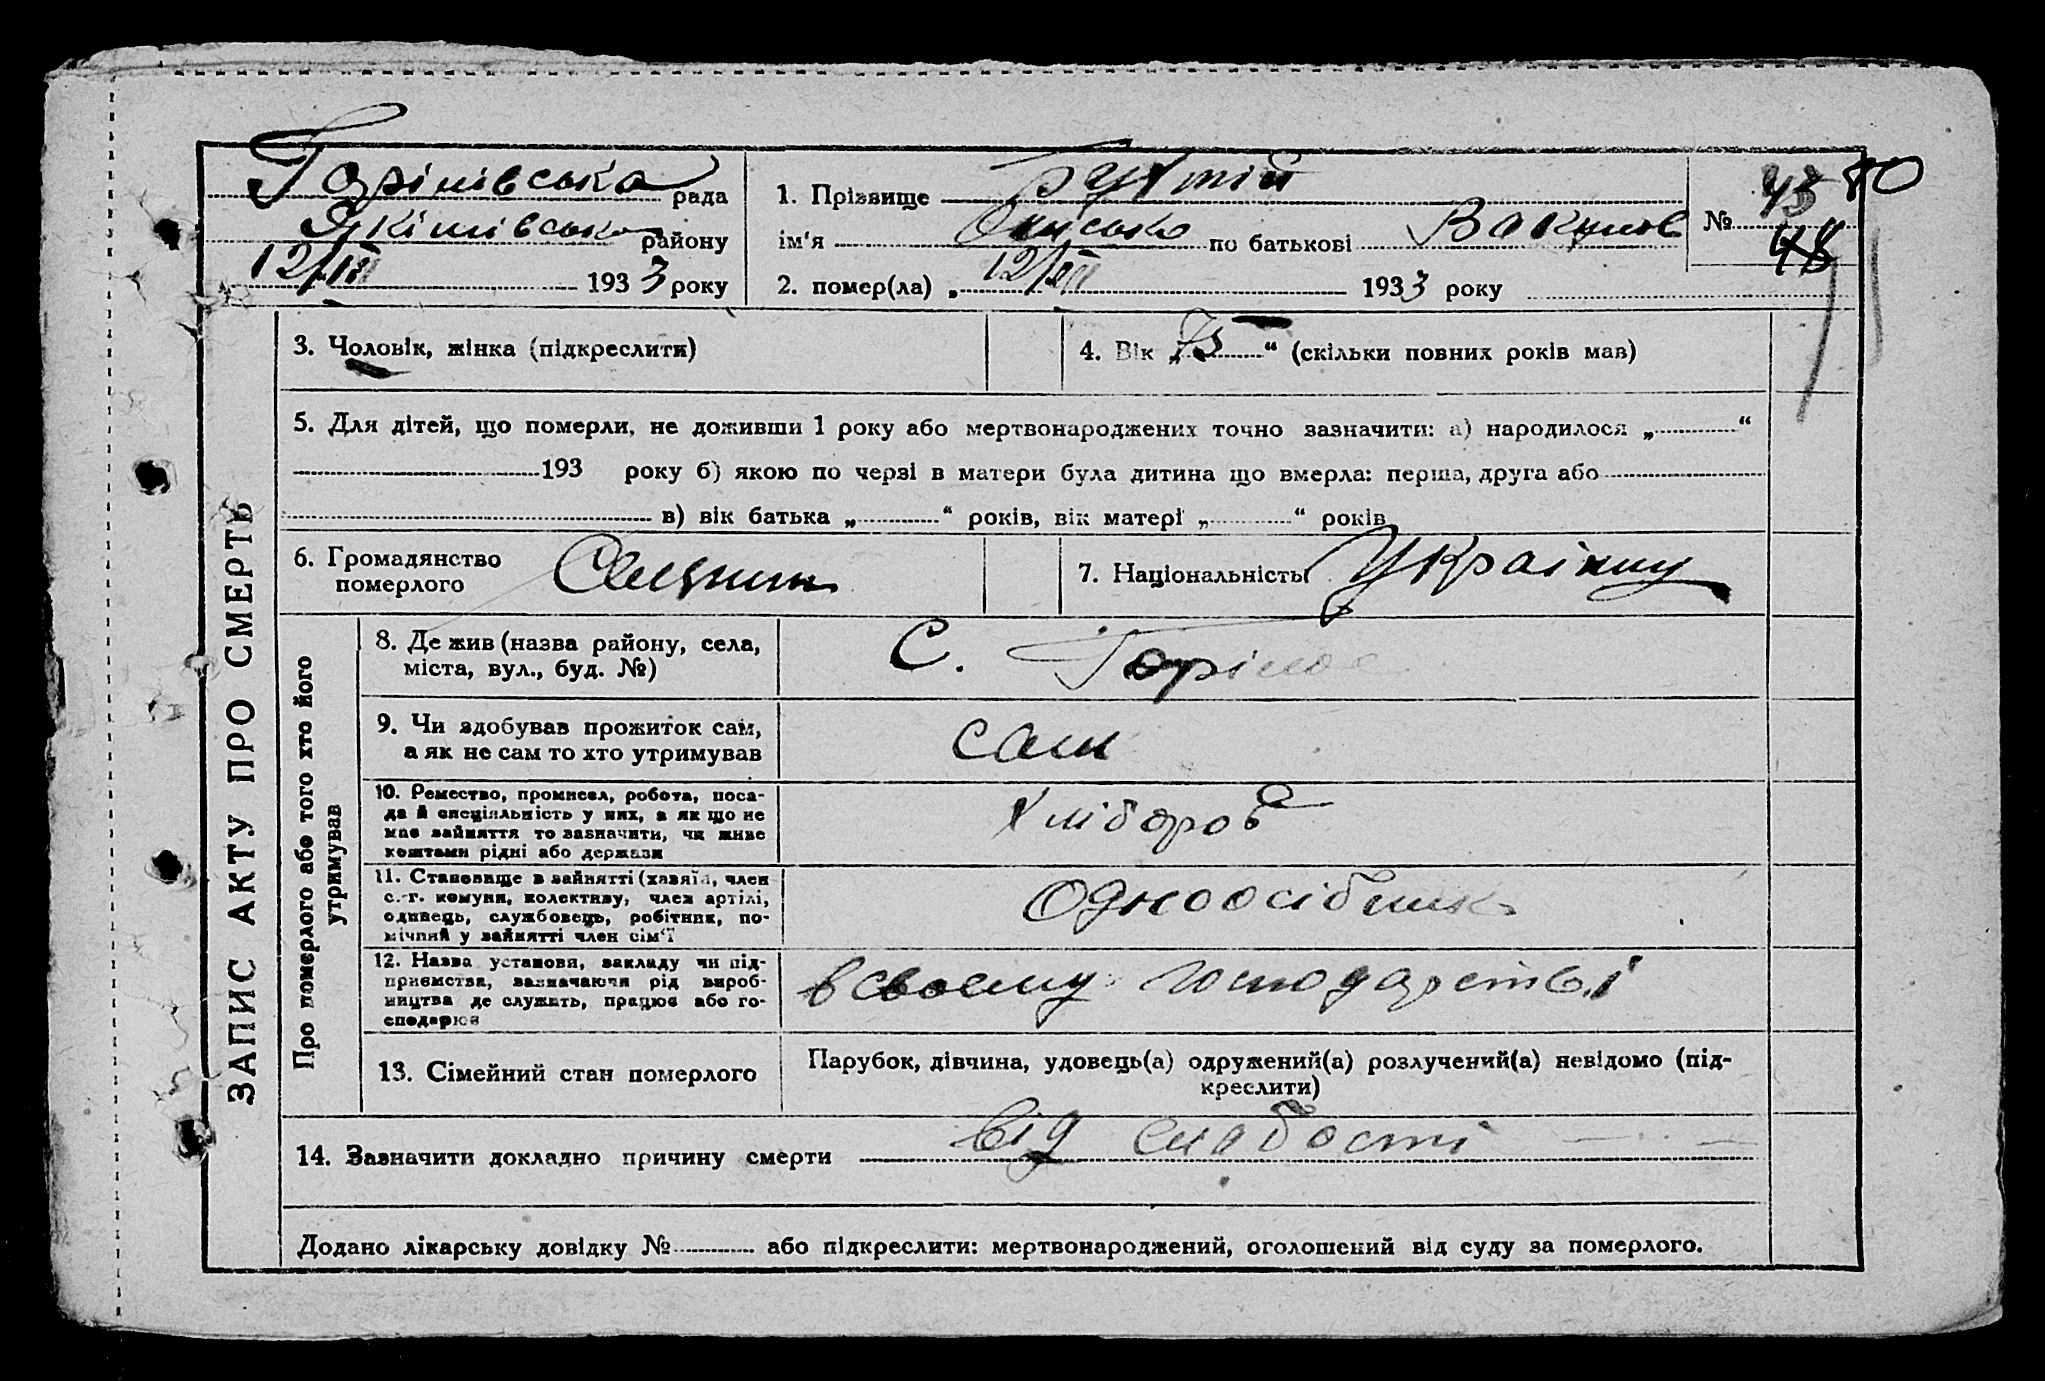 80
рада
43
1. Прізвище
району
ім'я по батькові Вакулов
№ 48
12/III 1933 року
2. помер(ла) „ 12/III 1933 року
3. Чоловік, жінка (підкреслити)
4. Вік „ “ (скільки повних років мав)
5. Для дітей, що померли, не доживши 1 року або мертвонароджених точно зазначити: а) народилося „ “
193 року б) якою по черзі в матери була дитина що вмерла: перша, друга або
в) вік батька „ “ років, вік матері „ “ років
6. Громадянство
померлого
7. Національність
ЗАПИС АКТУ ПРО СМЕРТЬ
Про померлого або того хто його
утримував
8. Де жив (назва району, села,
міста, вул., буд. №)
С.
9. Чи здобував прожиток сам,
а як не сам то хто утримував
сам
10. Ремество, промисел, робота, поса-
да й спеціяльність у них, а як що не
має зайняття то зазначити, чи живе
коштами рідні або держави
хлібороб
11. Становище в зайнятті (хазяїн, член
с.-г. комуни, колективу, член артілі,
одинець, службовець, робітник, по-
мічний у зайнятті член сім'ї
Одноосібник
12. Назва установи, закладу чи під-
приємства, зазначаючи рід вироб-
ництва де служить, працює або го-
сподарює
в своему господарстві
13. Сімейний стан померлого
Парубок, дівчина, удовець(а) одружений(а) розлучений(а) невідомо (під-
креслити)
14. Зазначити докладно причину смерти від слабости
Додано лікарську довідку № або підкреслити: мертвонароджений, оголошений від суду за померлого.